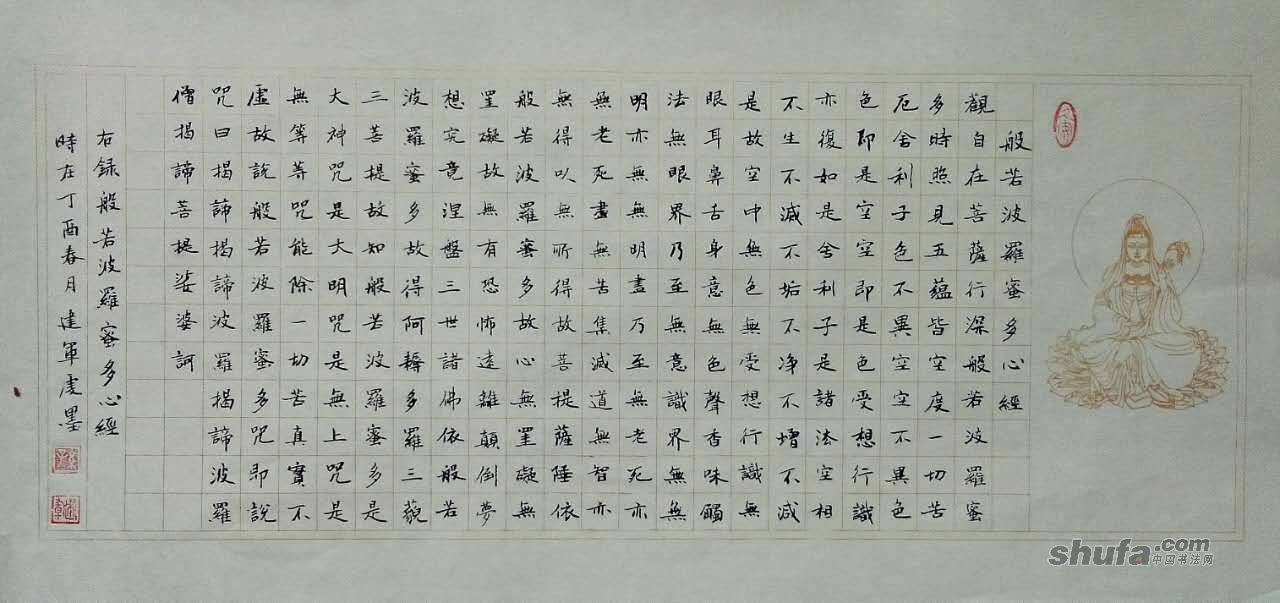 般若波羅蜜多心經
觀自在菩薩行深般若波羅蜜
多時照見五蘊皆空度一切苦
厄舍利子色不異空空不異色
色即是空空即是色受想行識
亦復如是舍利子是諸法空相
不生不滅不垢不净不增不减
是故空中無色受想行識無
眼耳鼻舌身意無色聲香味觸
法無眼界乃至無意識界無無
明亦無無明盡乃至無老死亦
無老死盡無苦集滅道無智亦
無得以無所得故菩提薩埵依
般若波羅蜜多故心無罣礙無
罣礙故無有恐怖遠離顛倒夢
想究竟涅盤三世諸佛依般若
波羅蜜多故得阿耨多羅三藐
三菩提故知般若波羅蜜多是
大神咒是大明咒是無上咒是
無等等咒能除一切苦真實不
虛故說般若波羅蜜多咒即說
咒曰揭諦揭諦波羅揭諦波羅
僧揭諦菩提娑婆訶
右録般若波羅蜜多心經
時在丁酉春月建軍虔墨
shufa.com
中国书法网